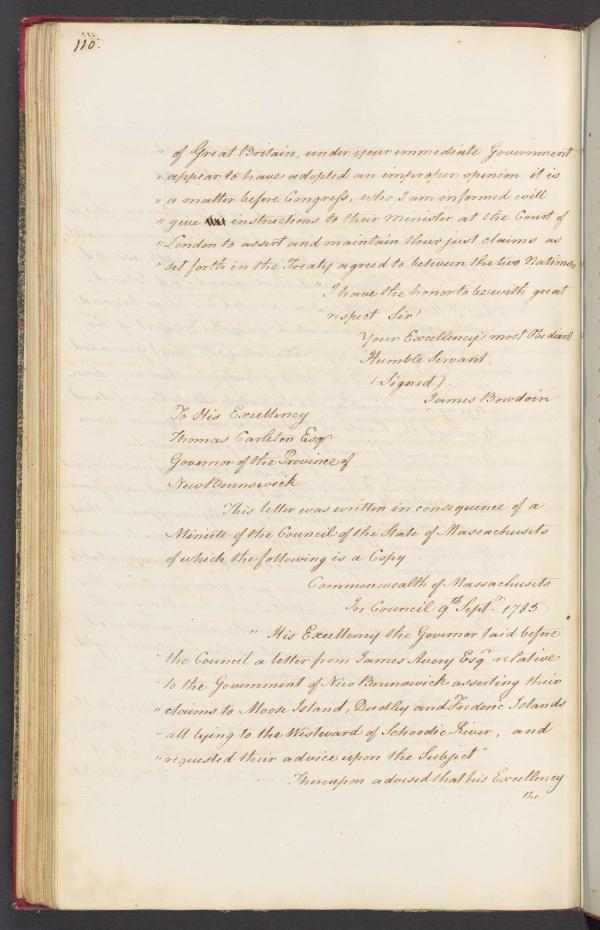 110.
" of Great Britain, under your immediate Government
" appear to have adopted an improper opinion it is
" a matter before Congress, who I am informed will
" give instructions to their Minister at the Court of
" London to assert and maintain their just claims as
" set forth in the Treaty agreed to between the two Nations,
" I have the honor to be with great
" respect Sir!
Your Excellency's most Obedient
Humble Servant
(Signed)
James Bowdoin
To His Excellency
Thomas Carleton Esqr
Governor of the Province of
New Brunswick
This letter was written in consequence of a
Minute of the Council of the State of Massachusits
of which the following is a Copy
Commonwealth of Massachusits
In Council 9th Septr. 1785.
" His Excellency the Governor laid before
" the Council a letter from James Avery Esqr relative
" to the Government of New Brunswick asserting their
" claims to Moose Island, Dudley and Frederic Islands
" all lying to the Westward of Schoodic River, and
" requested their advice upon the Subject"
Thereupon advised that his Excellency
the